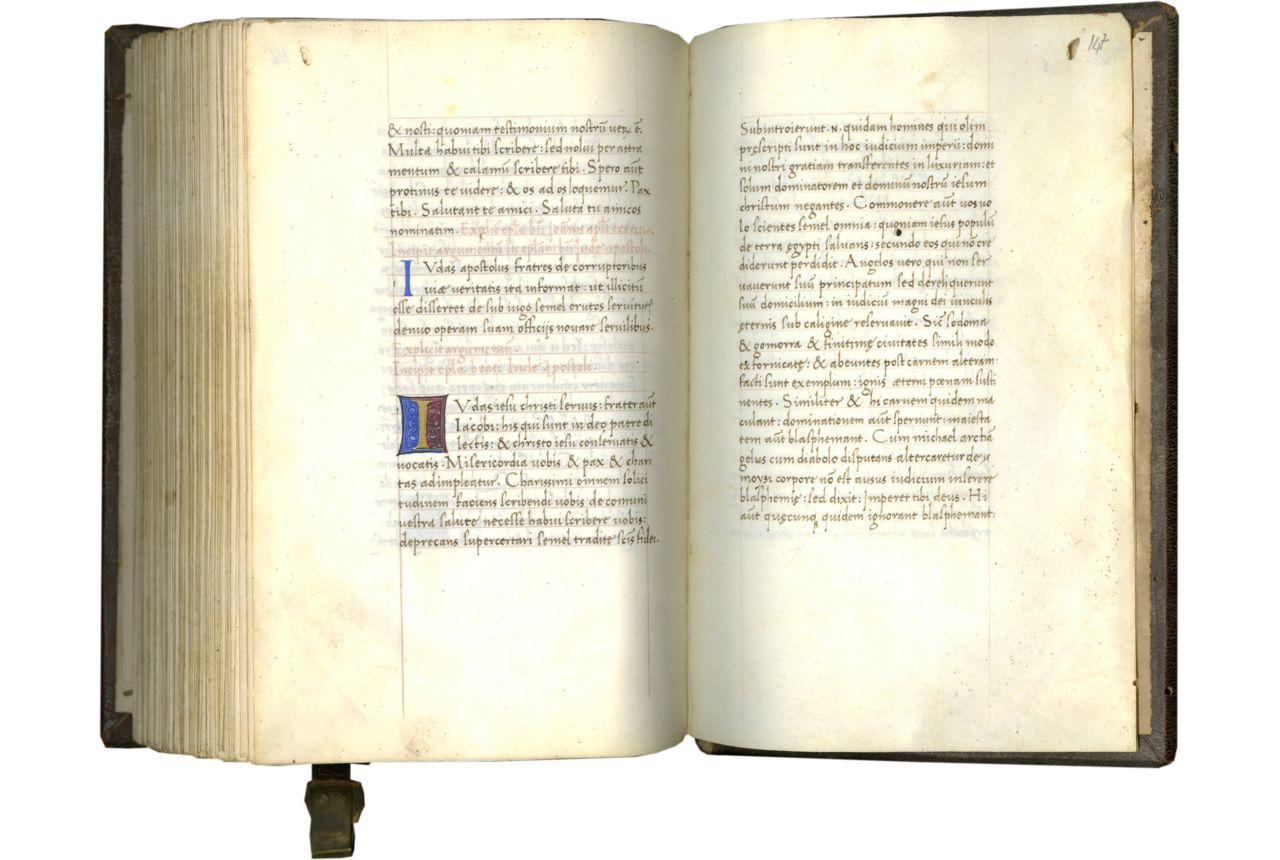 & nosti: quoniam testimonium nostrũ ueꝝ ẽ.
Multa habui tibi scribere: sed nolui per atra
mentum & calamũ scribere tibi. Spero aũt
protinus te uidere: & os ad os loquemur. Pax
tibi. Salutant te amici. Saluta tu amicos
nominatim. Explic̃ epl̃a bt̃i Joãnis apl̃i tertia.
Incipit argumentũ in epl̃am bt̃i Jude apostoli.
IVdas apostolus fratres de corruptoribus
uiæ ueritatis ita informat: ut illicitũ
esse dissertet de sub iugo semel erutos seruitutꝭ
denuo operam suam officijs nouare seruilibus.
Explicit argumentũ.
Incipit epl̃a beati Iude Apostoli.
IVdas iesu christi seruus: frater aũt
Iacobi: his qui sunt in deo patre di
lectis: & christo iesu conseruatis &
uocatis. Misericordia uobis & pax & chari
tas adimpleatur. Charissimi omnem solici
tudinem faciens scribendi uobis de comuni
uestra salute necesse habui scribere uobis:
deprecans supercertari semel traditę sc̃is fidei.
147
Subintroierunt .N. quidam homines qui olim
pręscripti sunt in hoc iudicium impii: domi
ni nostri gratiam transferentes in luxuriam: et
solum dominatorem et dominũ nostrũ iesum
christum negantes. Commonere aũt uos uo
lo scientes semel omnia: quoniam iesus populũ
de terra egypti saluans: secundo eos qui nõ cre
diderunt perdidit. Angelos uero qui non ser
uauerunt suũ principatum sed dereliquerunt
suũ domicilium: in iudiciũ magni dei uinculis
ęternis sub caligine reseruauit. Sic̃ sodoma
& gomorra & finitimę ciuitates simili modo
exfornicatę: & abeuntes post carnem alteram:
facti sunt exemplum: ignis æterni pœnam susti
nentes. Similiter & hi carnem quidem ma
culant: dominationem aũt spernunt: maiesta
tem aũt blasphemant. Cum michael archã
gelus cum diabolo disputans altercaretur de
moysi corpore nõ est ausus iudicium inserere
blasphemię: sed dixit: Imperet tibi deus. Hi
aũt quęcunq̨ quidem ignorant blasphemant: